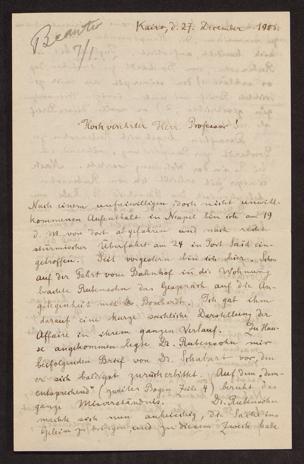 Beantw.
7/1
Kairo, d. 27. Dezember 1905.
Hoch verehrter Herr Professor!
Nach einem unfreiwilligen, doch nicht unwill-
kommenen Aufenthalt in Neapel bin ich am 19
d. M. von dort abgefahren und nach recht
stürmischer Überfahrt am 24 in Port Said ein-
getroffen. Seit vorgestern bin ich hier. Schon
auf der Fahrt vom Bahnhof in die Wohnung
brachte Rubensohn das Gespräch auf die An-
gelegenheit mit Borchardt. Ich gab ihm
darauf eine kurze sachliche Darstellung der
Affaire in ihrem ganzen Verlauf. Zu Hau-
se angekommen legte Dr. Rubensohn mir
beifolgenden Brief von Dr. Schubart vor, den
er sich baldigst zurück erbittet. Auf dem „dem-
entsprechend" (zweiter Bogen Zeile 4) beruht das
ganze Missverständnis. Dr. Rubensohn
machte sich nun anheischig, die Sache ins
Geleise zu bringen und zu diesem Zweck habe